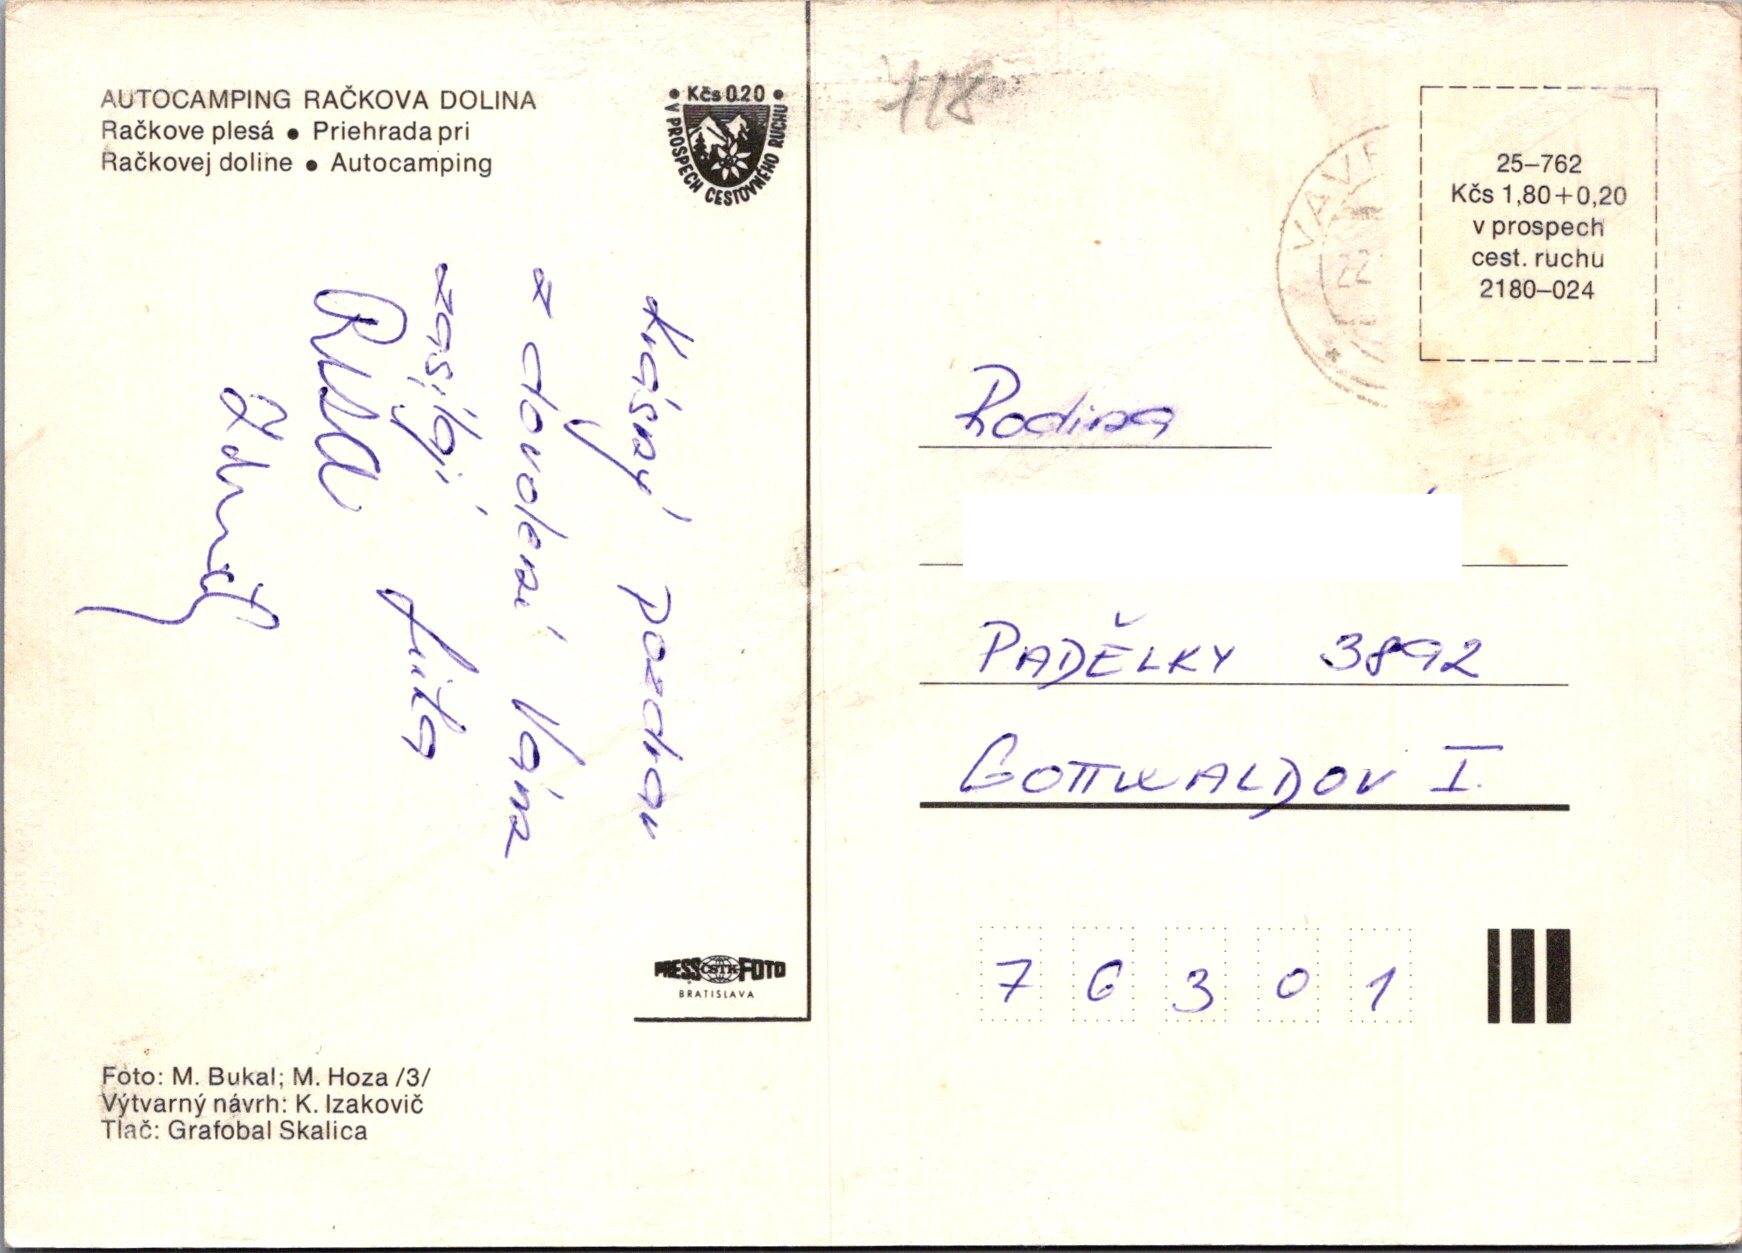 AUTOCAMPING RAČKOVA DOLINA
Račkove plesá • Priehrada pri
Račkovej doline • Autocamping
• Kčs 0.20 •
V PROSPECH CESTOVNÉHO RUCHU
Krásný pozdrav
z dovolené Vám
zasílají Jitka
Zdeněk
PRESS ČSTK FOTO
BRATISLAVA
Foto: M. Bukal; M. Hoza /3/
Výtvarný návrh: K. Izakovič
Tlač: Grafobal Skalica
118
VAVR
22
25–762
Kčs 1,80+0,20
v prospech
cest. ruchu
2180–024
Rodina
PADĚLKY 3892
GOTTWALDOV I.
76301